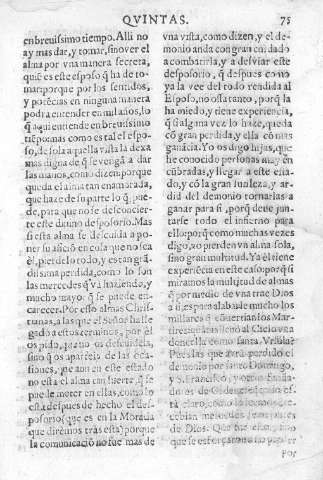 QVINTAS. 75
en breuissimo tiempo. Alli no
ay mas dar, y tomar, sino ver el
alma por vna manera secreta,
quiē es este esposo q̄ ha de to-
mar: porque por los sentidos,
y potēcias en ninguna manera
podra entender en mil años, lo
q̄ aqui entiende en breuissimo
tiēpo: mas como es tal el espo-
so, de sola aquella vista la dexa
mas digna de q̄ se vengā a dar
las manos, como dizen: porque
queda el alma tan enamorada,
que haze de su parte lo q̄ pue-
de, para que no se desconcier-
te este diuino desposorio. Mas
si esta alma se descuida a po-
ner su aficiō en cosa que no sea
el, pierdelo todo, y es tan grā-
dissima perdida, como lo son
las mercedes q̄ va haziendo, y
mucho mayor q̄ se puede en-
carecer. Por esso almas Chris-
tianas, a las que el Señor ha lle-
gado a estos terminos, por el
os pido, que no os descuideis,
sino que os aparteis de las oca-
siones, que aun en este estado
no està el alma tan fuerte, q̄ se
puede meter en ellas, como lo
està despues de hecho el des-
posorio, que es en la Morada
que diremos tras esta: porque
la comunicaciō no fue mas de
vna vista, como dizen, y el de-
monio anda con gran cuidado
a combatirla, y a desuiar este
desposorio, q̄ despues como
ya la vee del todo rendida al
Esposo, no ossa tanto, porq̄ la
ha miedo, y tiene experiencia,
q̄ si alguna vez lo haze, queda
cō gran perdida, y ella cō mas
ganācia. Yo os digo hijas, que
he conocido personas muy en
cūbradas, y llegar a este esta-
do, y cō la gran sutileza, y ar-
did del demonio tornarlas a
ganar para si, porq̄ deue jun-
tarse todo el infierno para
ello: porq̄ como muchas vezes
digo, no pierden vn alma sola,
sino gran multitud. Ya el tiene
experiēcia en este caso: porq̄ si
miramos la multitud de almas
q̄ por medio de vna trae Dios
a si, es para alabarle mucho los
millares q̄ cōuertian los Mar-
tires
donzella como santa Vrsula?
Pues las que aura perdido el
demonio por santo Domingo,
y S. Francisco, y otros funda-
dores de Ordenes
tà claro, como lo
cebian mercedes semejantes
de Dios. Que fue esto, sino
que se esforçaron a no perder
Por